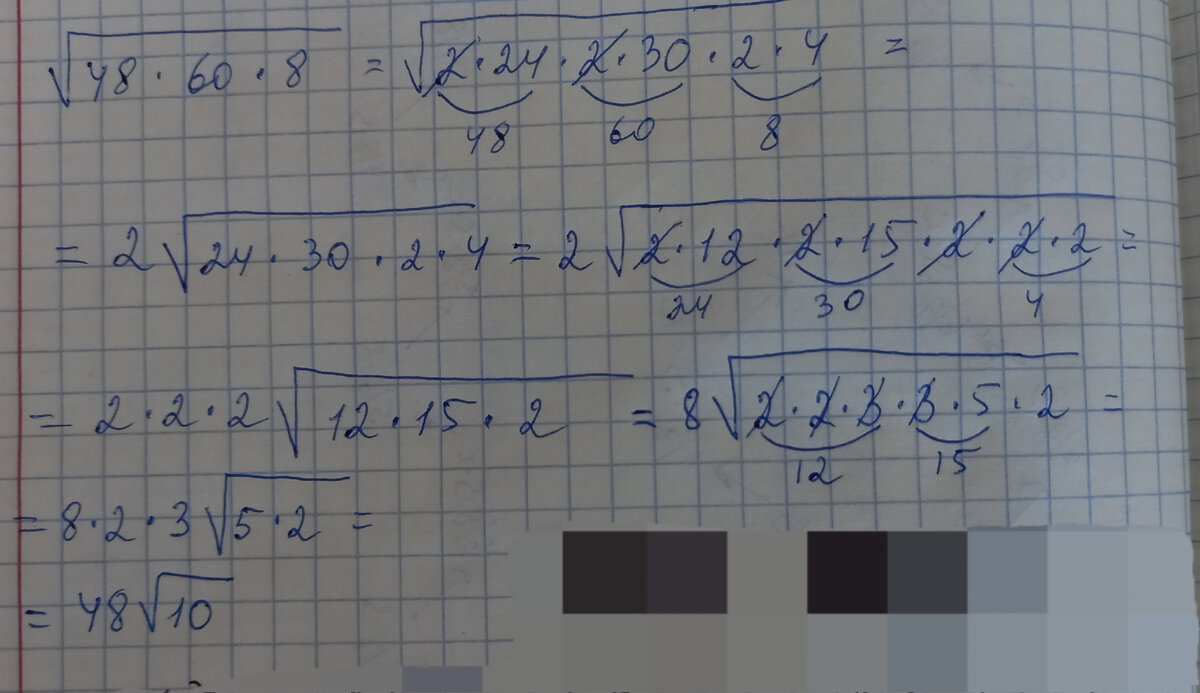 √48·60·8 = √2·24·2·30·2·4 =
48 60 8
= 2√24·30·2·4 = 2√2·12·2·15·2·2·2 =
24 30 4
= 2·2·2√12·15·2 = 8√2·2·3·3·5·2 =
12 15
= 8·2·3√5·2 =
= 48√10